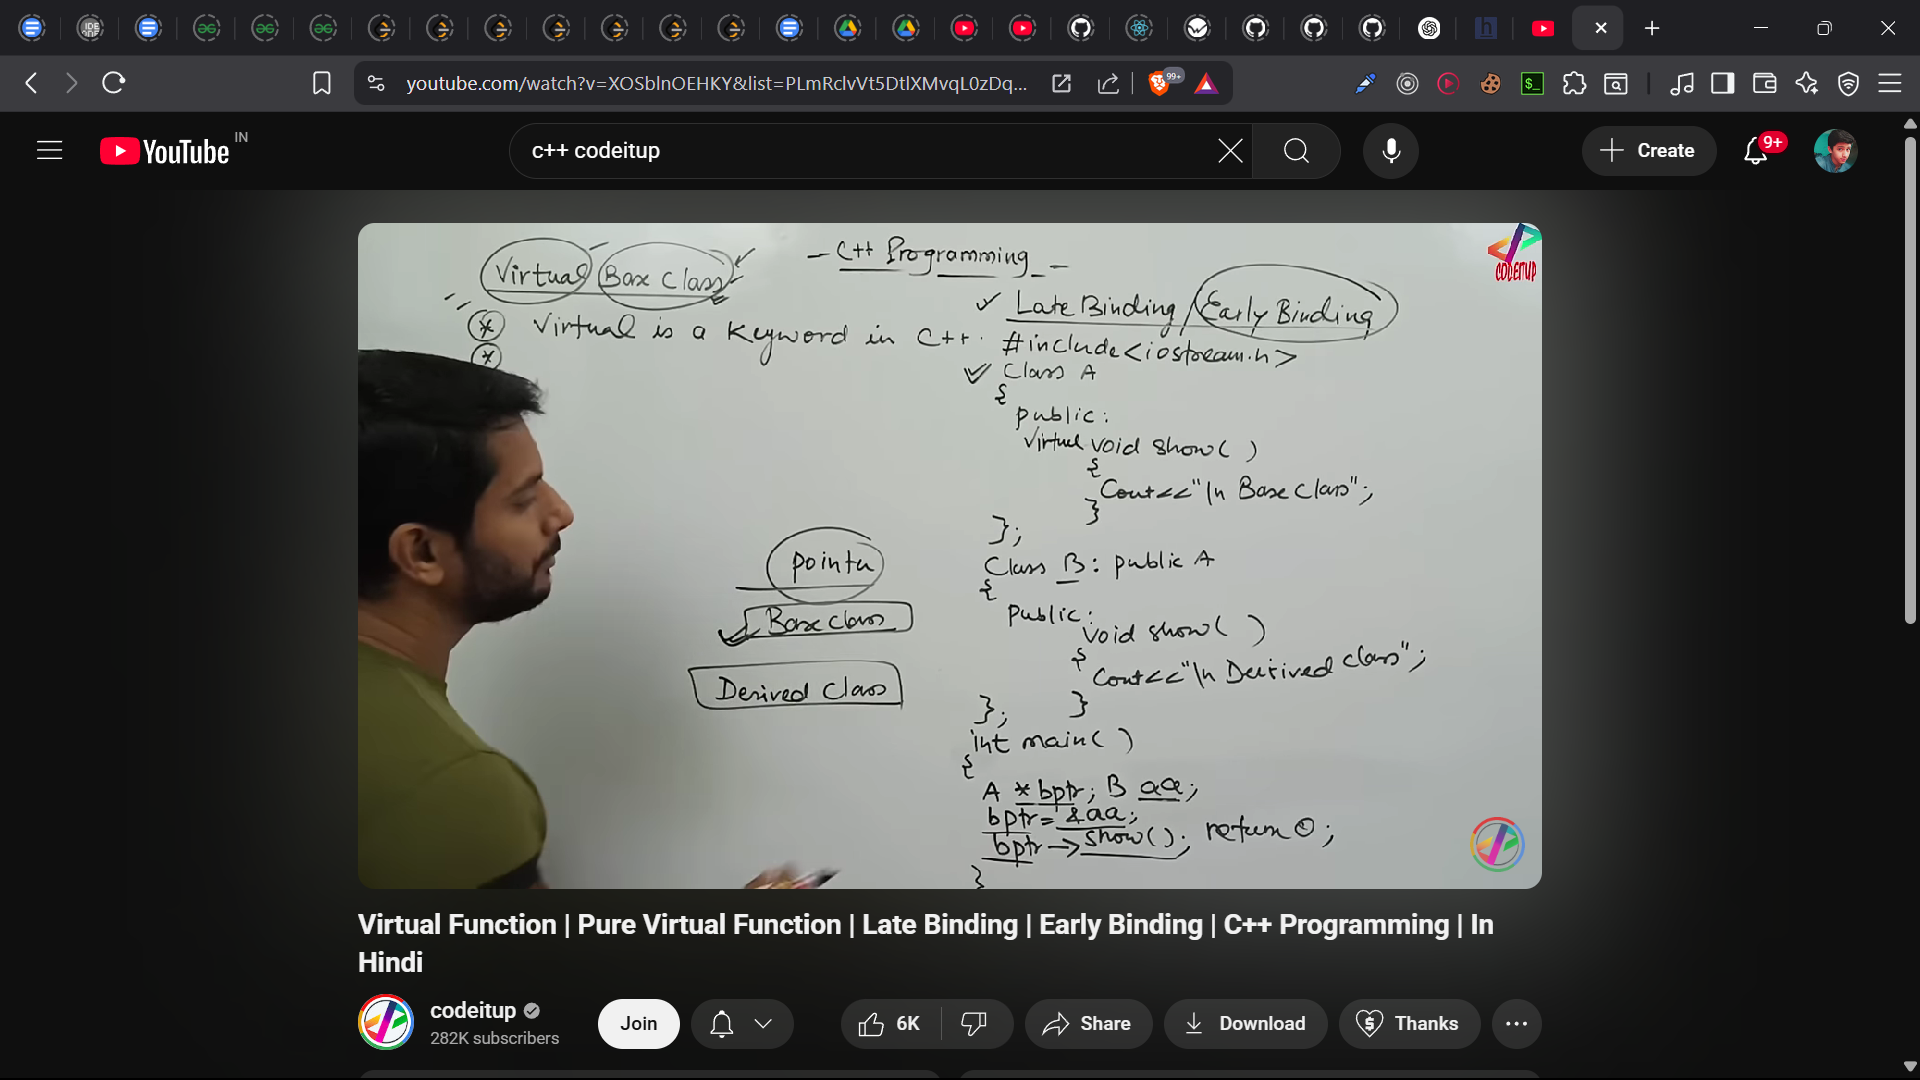 youtube.com/watch?v=XOSblnOEHKY&list=PLmRclvVt5DtlXMvqL0zDq...
99+
YouTube IN
c++ codeitup
Create
9+
Virtual Base Class
- C++ Programming -
CODEITUP
Late Binding / Early Binding
* Virtual is a Keyword in C++.
*
#include<iostream.h>
Class A
{
public:
Virtual void show( )
{
Cout<<"\n Base Class";
}
};
Class B : public A
{
Public:
void show( )
{
Cout<<"\n Derived Class";
}
};
int main( )
{
A *bptr; B aa;
bptr = &aa;
bptr → show(); return 0;
}
pointer
Base Class
Derived Class
Virtual Function | Pure Virtual Function | Late Binding | Early Binding | C++ Programming | In
Hindi
codeitup
282K subscribers
Join
6K
Share
Download
Thanks